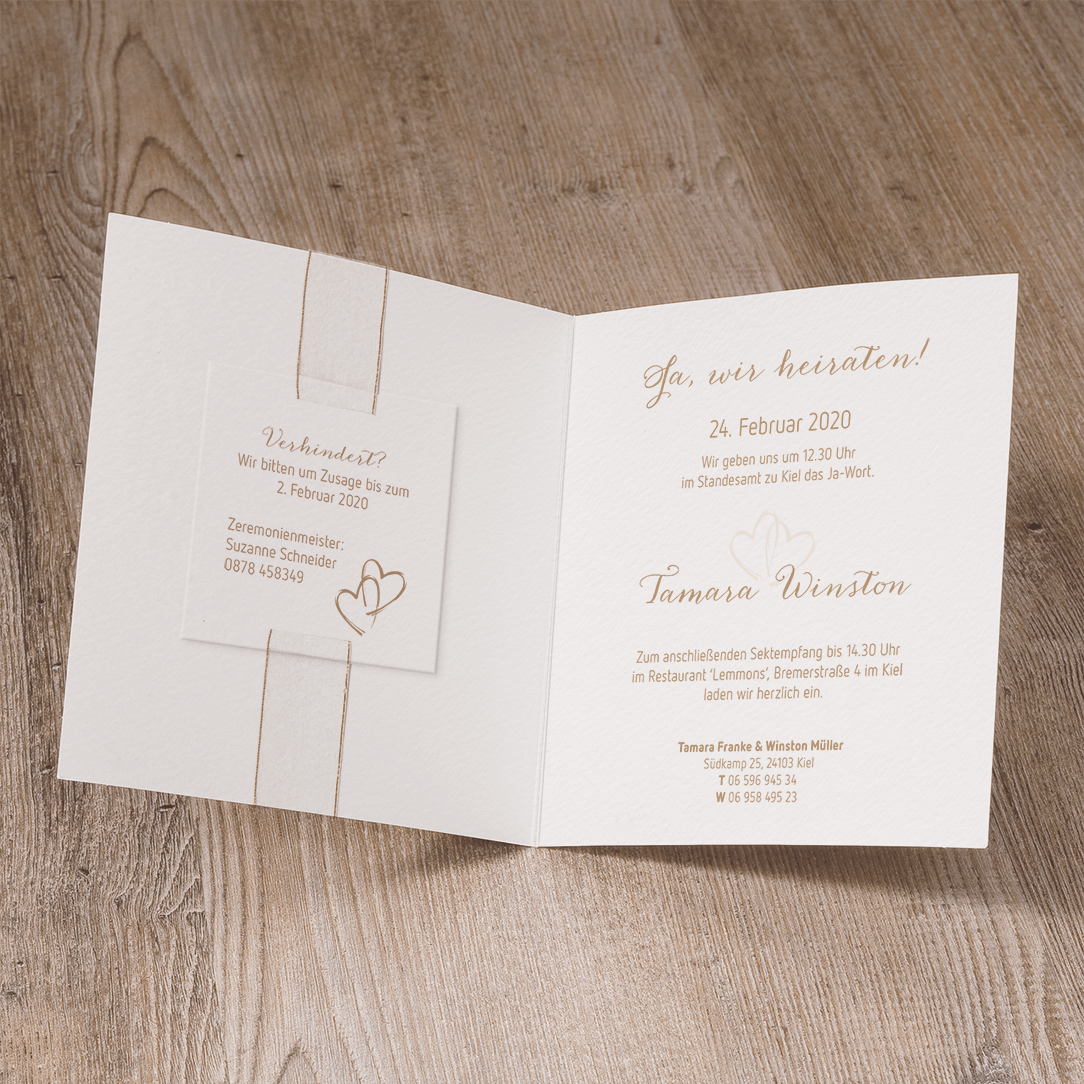 Verhindert?
Wir bitten um Zusage bis zum
2. Februar 2020
Zeremonienmeister:
Suzanne Schneider
0878 458349
Ja, wir heiraten!
24. Februar 2020
Wir geben uns um 12.30 Uhr
im Standesamt zu Kiel das Ja-Wort.
Tamara Winston
Zum anschließenden Sektempfang bis 14.30 Uhr
im Restaurant ‘Lemmons’, Bremerstraße 4 im Kiel
laden wir herzlich ein.
Tamara Franke & Winston Müller
Südkamp 25, 24103 Kiel
T 06 596 945 34
W 06 958 495 23